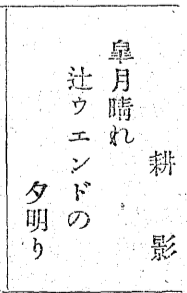 耕影
皐月晴れ
辻ウエンドの
夕明り